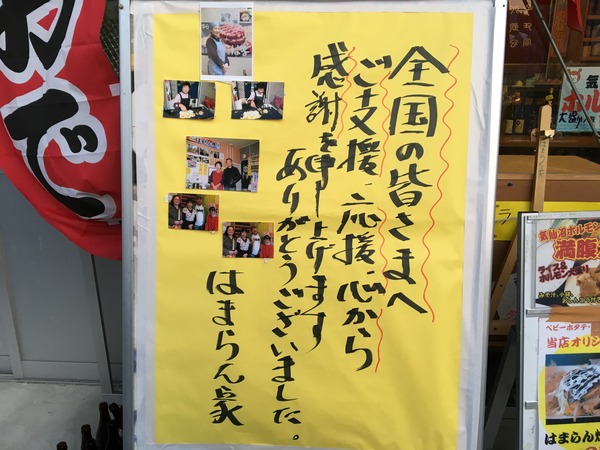 全国の皆さまへ
ご支援、応援、心から
感謝を申し上げます
ありがとうございました。
はまらん家
おで
気仙沼ホルモン
満腹
ライス&
ホルモン大盛り
ベビーホタテ
当店オリジ
はまらん焼